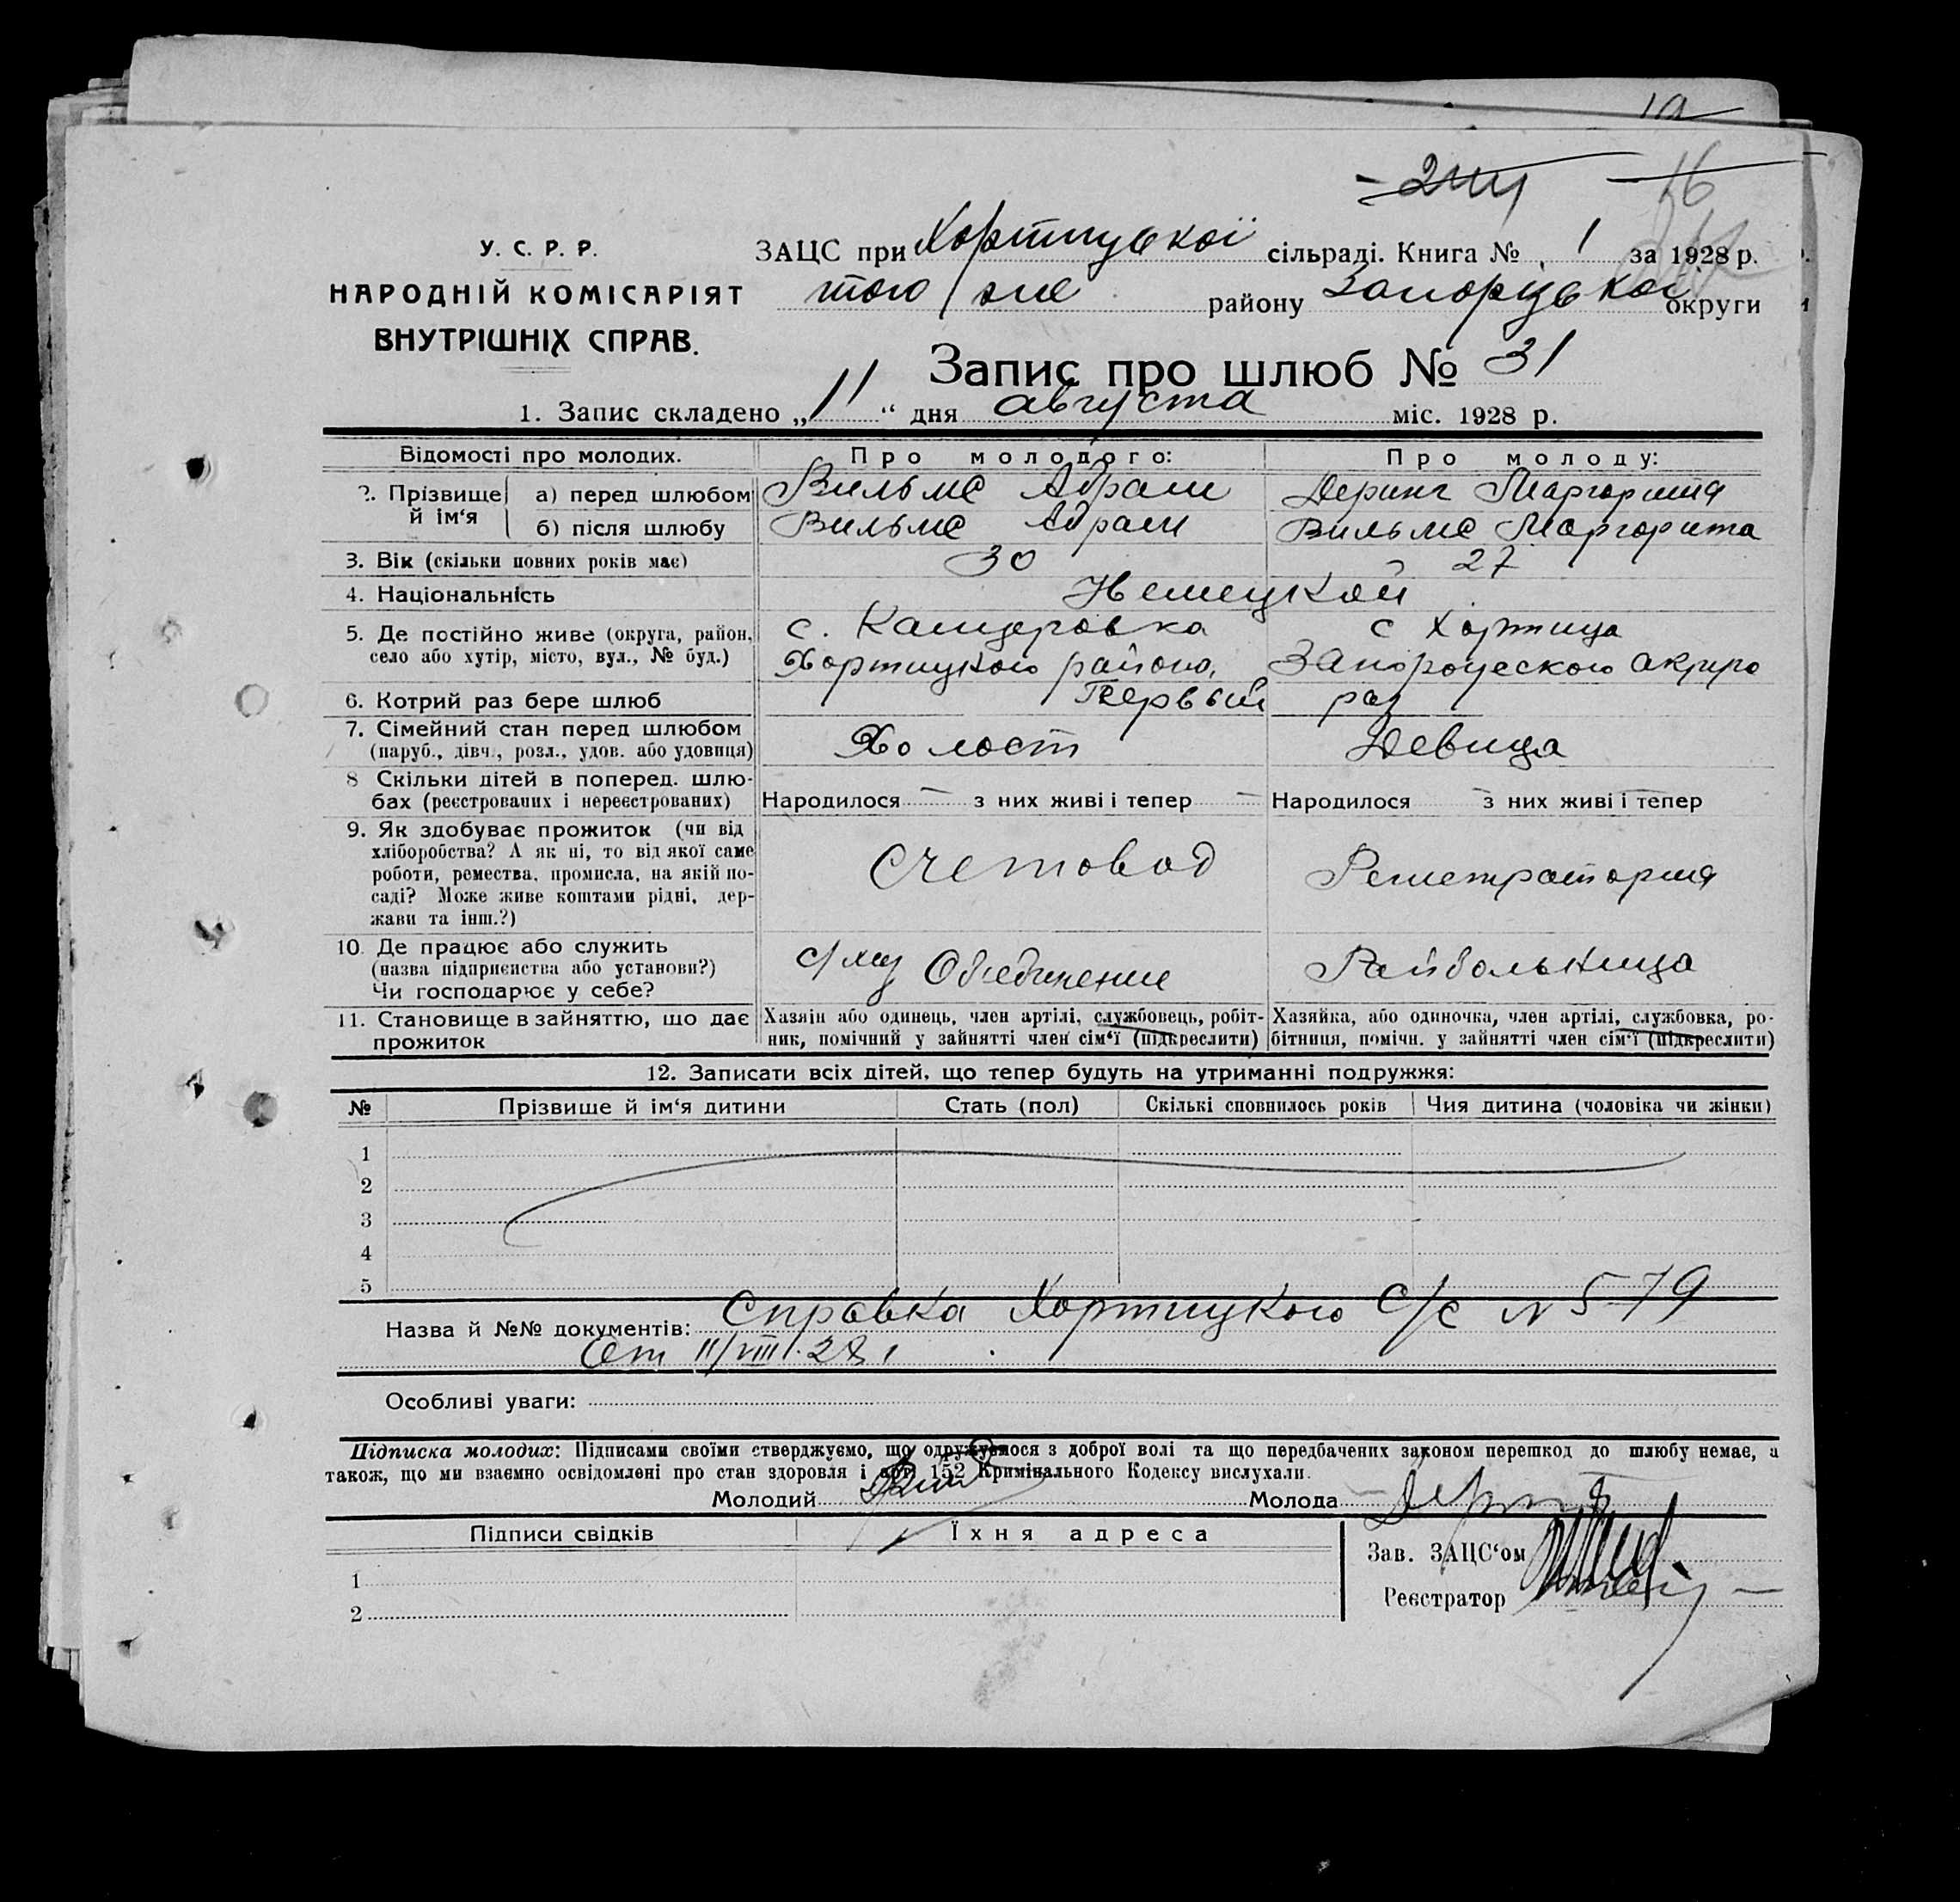 У. С. Р. Р.
НАРОДНІЙ КОМІСАРІЯТ
ВНУТРІШНІХ СПРАВ.
ЗАЦС при Хортицької сільраді. Книга № 1 за 1928 р.
того же району Запоріцької округи
Запис про шлюб № 31
1. Запис складено „11“ дня августа міс. 1928 р.
Відомості про молодих. Про молодого: Про молоду:
2. Прізвище й ім‘я
а) перед шлюбом Вильмс Абрам Деринг Маргарита
б) після шлюбу Вильмс Абрам Вильмс Маргарита
3. Вік (скільки повних років має) 30 27
4. Національність Немецкой
5. Де постійно живе (округа, район, с. Канцеровка с Хортица
село або хутір, місто, вул., № буд.) Хортицкого района, Запорожского
6. Котрий раз бере шлюб Первый раз
7. Сімейний стан перед шлюбом Холост Девица
(паруб., дівч., розл., удов. або удовиця)
8 Скільки дітей в поперед. шлю-
бах (реєстрованих і нереєстрованих) Народилося — з них живі і тепер — Народилося — з них живі і тепер
9. Як здобуває прожиток (чи від
хліборобства? А як ні, то від якої саме
роботи, ремества, промисла, на якій по- Счетовод Регистраторша
саді? Може живе коштами рідні, дер-
жави та інш.?)
10. Де працює або служить
(назва підприємства або установи?) с/хоз Объединение Райбольница
Чи господарює у себе?
11. Становище в зайняттю, що дає Хазяін або одинець, член артілі, службовець, робіт- Хазяйка, або одиночка, член артілі, службовка, ро-
прожиток ник, помічний у зайнятті член сім‘ї (підкреслити) бітниця, помічн. у зайнятті член сім‘ї (підкреслити)
12. Записати всіх дітей, що тепер будуть на утриманні подружжя:
№ Прізвище й ім‘я дитини Стать (пол) Скількі сповнилось років Чия дитина (чоловіка чи жінки)
1
2
3
4
5
Назва й №№ документів: Справка Хортицкого С/с № 579
От 11/VIII.28
Особливі уваги:
Підписка молодих: Підписами своїми стверджуємо, що одружуємося з доброї волі та що передбачених законом перешкод до шлюбу немає, а
також, що ми взаємно освідомлені про стан здоровля і арт. 152 Кримінального Кодексу вислухали.
Молодий Молода
Підписи свідків Їхня адреса
Зав. ЗАЦС‘ом
1
Реєстратор
2